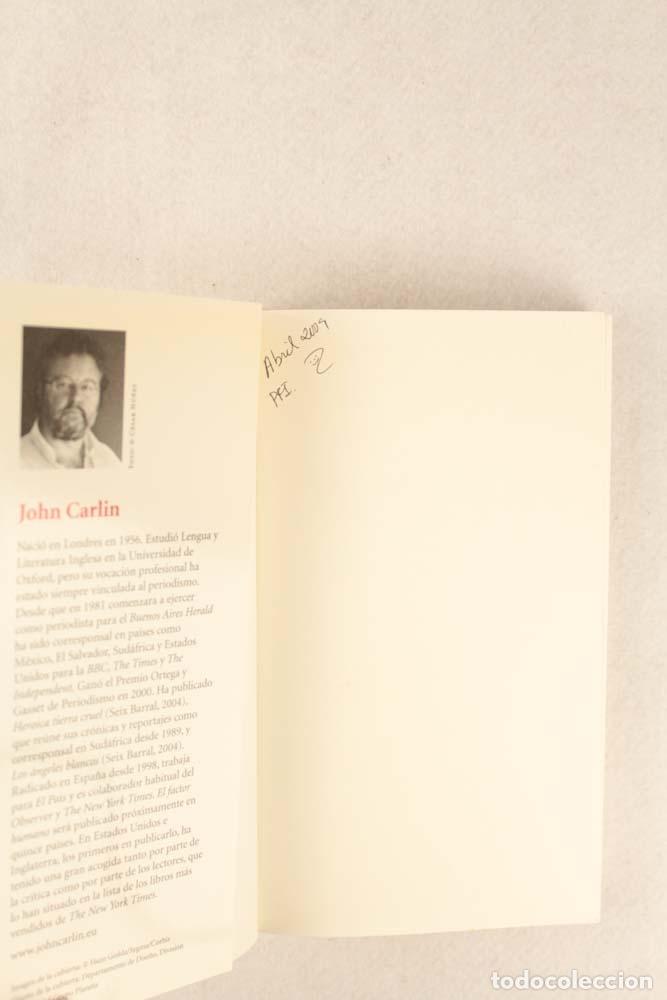 Foto: © César Núñez
John Carlin
Nació en Londres en 1956. Estudió Lengua y
Literatura Inglesa en la Universidad de
Oxford, pero su vocación profesional ha
estado siempre vinculada al periodismo.
Desde que en 1981 comenzara a ejercer
como periodista para el Buenos Aires Herald
ha sido corresponsal en países como
México, El Salvador, Sudáfrica y Estados
Unidos para la BBC, The Times y The
Independent. Ganó el Premio Ortega y
Gasset de Periodismo en 2000. Ha publicado
Heroica tierra cruel (Seix Barral, 2004),
que reúne sus crónicas y reportajes como
corresponsal en Sudáfrica desde 1989, y
Los ángeles blancos (Seix Barral, 2004).
Radicado en España desde 1998, trabaja
para El País y es colaborador habitual del
Observer y The New York Times. El factor
humano será publicado próximamente en
quince países. En Estados Unidos e
Inglaterra, los primeros en publicarlo, ha
tenido una gran acogida tanto por parte de
la crítica como por parte de los lectores, que
lo han situado en la lista de los libros más
vendidos de The New York Times.
www.johncarlin.eu
Imagen de la cubierta: © Huan Godda/Sygma/Corbis
de la cubierta: Departamento de Diseño, División
Planeta
Abril 2009
PFI.
todocoleccion